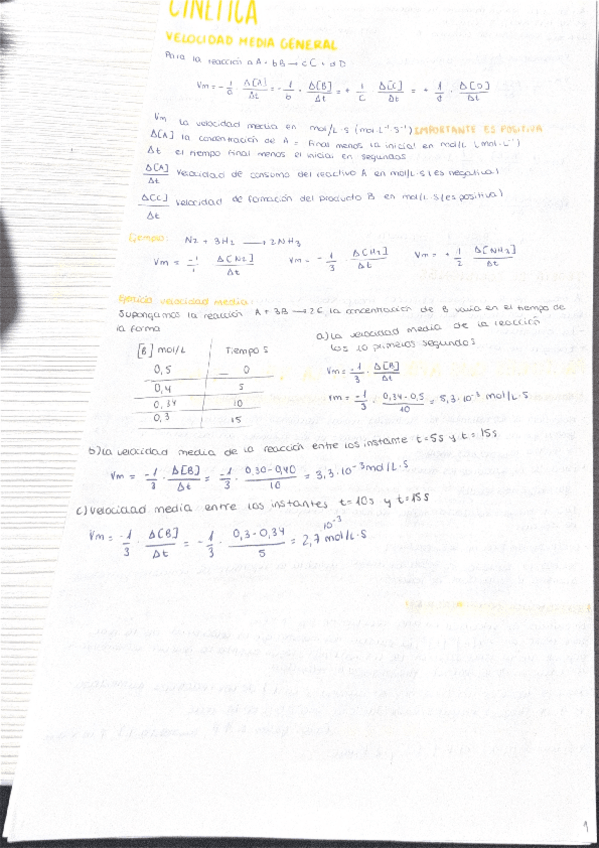 CINETICA
VELOCIDAD MEDIA GENERAL
Para la reacción aA + bB → cC + dD
Vm = - 1/a · Δ[A]/Δt = - 1/b · Δ[B]/Δt = + 1/c · Δ[C]/Δt = + 1/d · Δ[D]/Δt
Vm la velocidad media en mol/L·s (mol·L⁻¹·s⁻¹) IMPORTANTE ES POSITIVA
Δ[A] la concentración de A = final menos la inicial en mol/L (mol·L⁻¹)
Δt el tiempo final menos el inicial en segundos
Δ[A]/Δt velocidad de consumo del reactivo A en mol/L·s (es negativa)
Δ[C]/Δt velocidad de formación del producto B en mol/L·s (es positiva)
Ejemplo: N2 + 3H2 → 2NH3
Vm = -1/1 · Δ[N2]/Δt Vm = - 1/3 · Δ[H2]/Δt Vm = + 1/2 · Δ[NH3]/Δt
Ejercicio velocidad media:
Supongamos la reacción A + 3B → 2C, la concentración de B varia en el tiempo de
la forma
[B] mol/L Tiempo s
0,5 0
0,4 5
0,34 10
0,3 15
a) La velocidad media de la reacción
los 10 primeros segundos
Vm = -1/3 · Δ[B]/Δt
Vm = -1/3 · 0,34-0,5/10 = 5,3·10⁻³ mol/L·s
b) La velocidad media de la reacción entre los instante t=5s y t=15s
Vm = -1/3 · Δ[B]/Δt = -1/3 · 0,30-0,40/10 = 3,3·10⁻³ mol/L·s
c) velocidad media entre los instantes t=10s y t=15s
Vm = -1/3 · Δ[B]/Δt = -1/3 · 0,3-0,34/5 = 2,7 10⁻³ mol/L·s
1